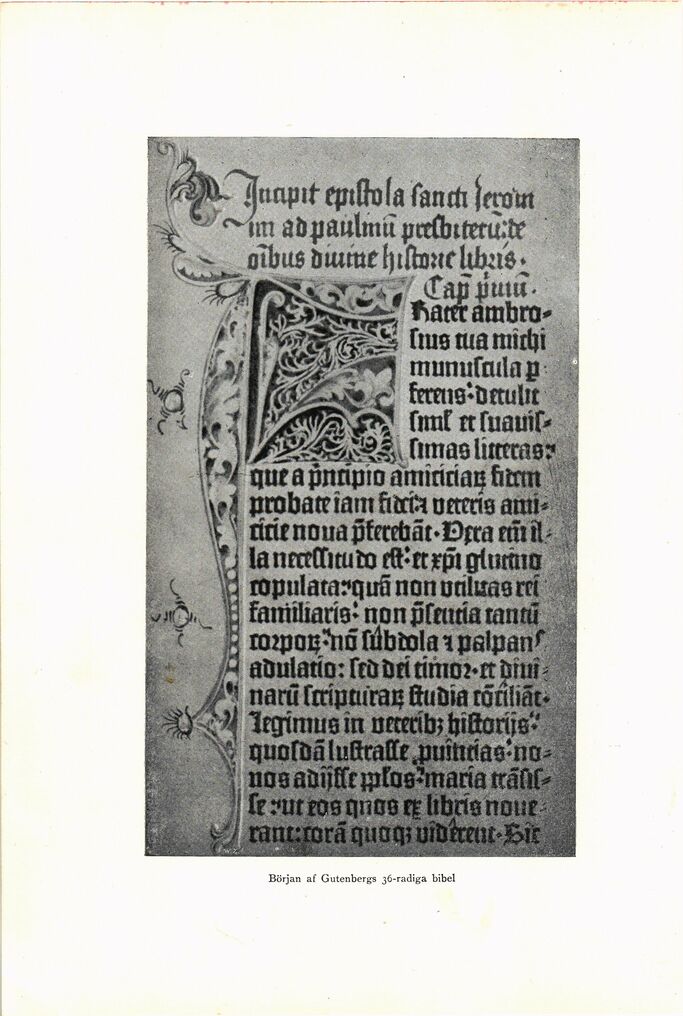 Incipit epistola sancti Ieroni
mi ad paulinū presbiterū: de
oībus diuine historie libris.
Cap̄ pͥmū.
Frater ambro-
sius tua michi
munuscula ꝑ
ferens· detulit
simƚ et suauis-
simas litteras:
que a pͥncipio amiciciaꝝ fidem
probate iam fidei ⁊ veteris ami-
citie noua p̄ferebāt. Uera em̄ il-
la necessitudo est· et xp̄i glutino
copulata: quā non vtilitas rei
familiaris: non p̄sencia tantū
corpoꝝ: nō subdola ⁊ palpans
adulatio: sed dei timor· et diui-
narū scripturaꝝ studia cōciliāt.
Legimus in veteribꝫ historijs:
quosdā lustrasse ꝓuincias· no-
uos adijsse ppƚos: maria trāsis-
se: ut eos quos ex libris noue-
rant: corā quoqꝫ viderent. Sic
Början af Gutenbergs 36-radiga bibel